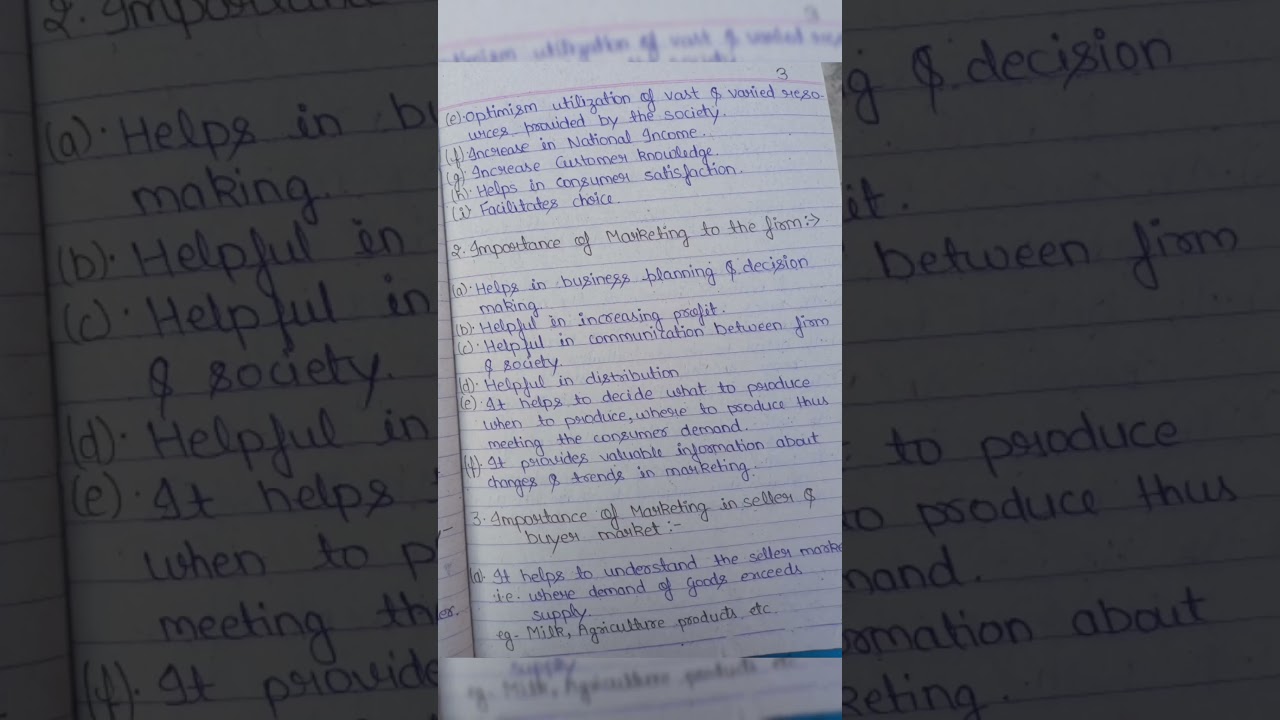 3
(e). Optimism utilization of vast & varied reso-
urces provided by the society.
(f). Increase in National Income.
(g). Increase Customer knowledge.
(h). Helps in consumer satisfaction.
(i) Facilitates choice.
2. Importance of Marketing to the firm:->
(a). Helps in business planning & decision
making.
(b). Helpful in increasing profit.
(c). Helpful in communization between firm
& society.
(d). Helpful in distribution
(e). It helps to decide what to produce
when to produce, where to produce thus
meeting the consumer demand.
(f). It provides valuable information about
changes & trends in marketing.
3. Importance of Marketing in seller &
buyer market :-
(a). It helps to understand the seller marke
i.e. where demand of goods exceeds
supply.
eg- Milk, Agriculture products etc.